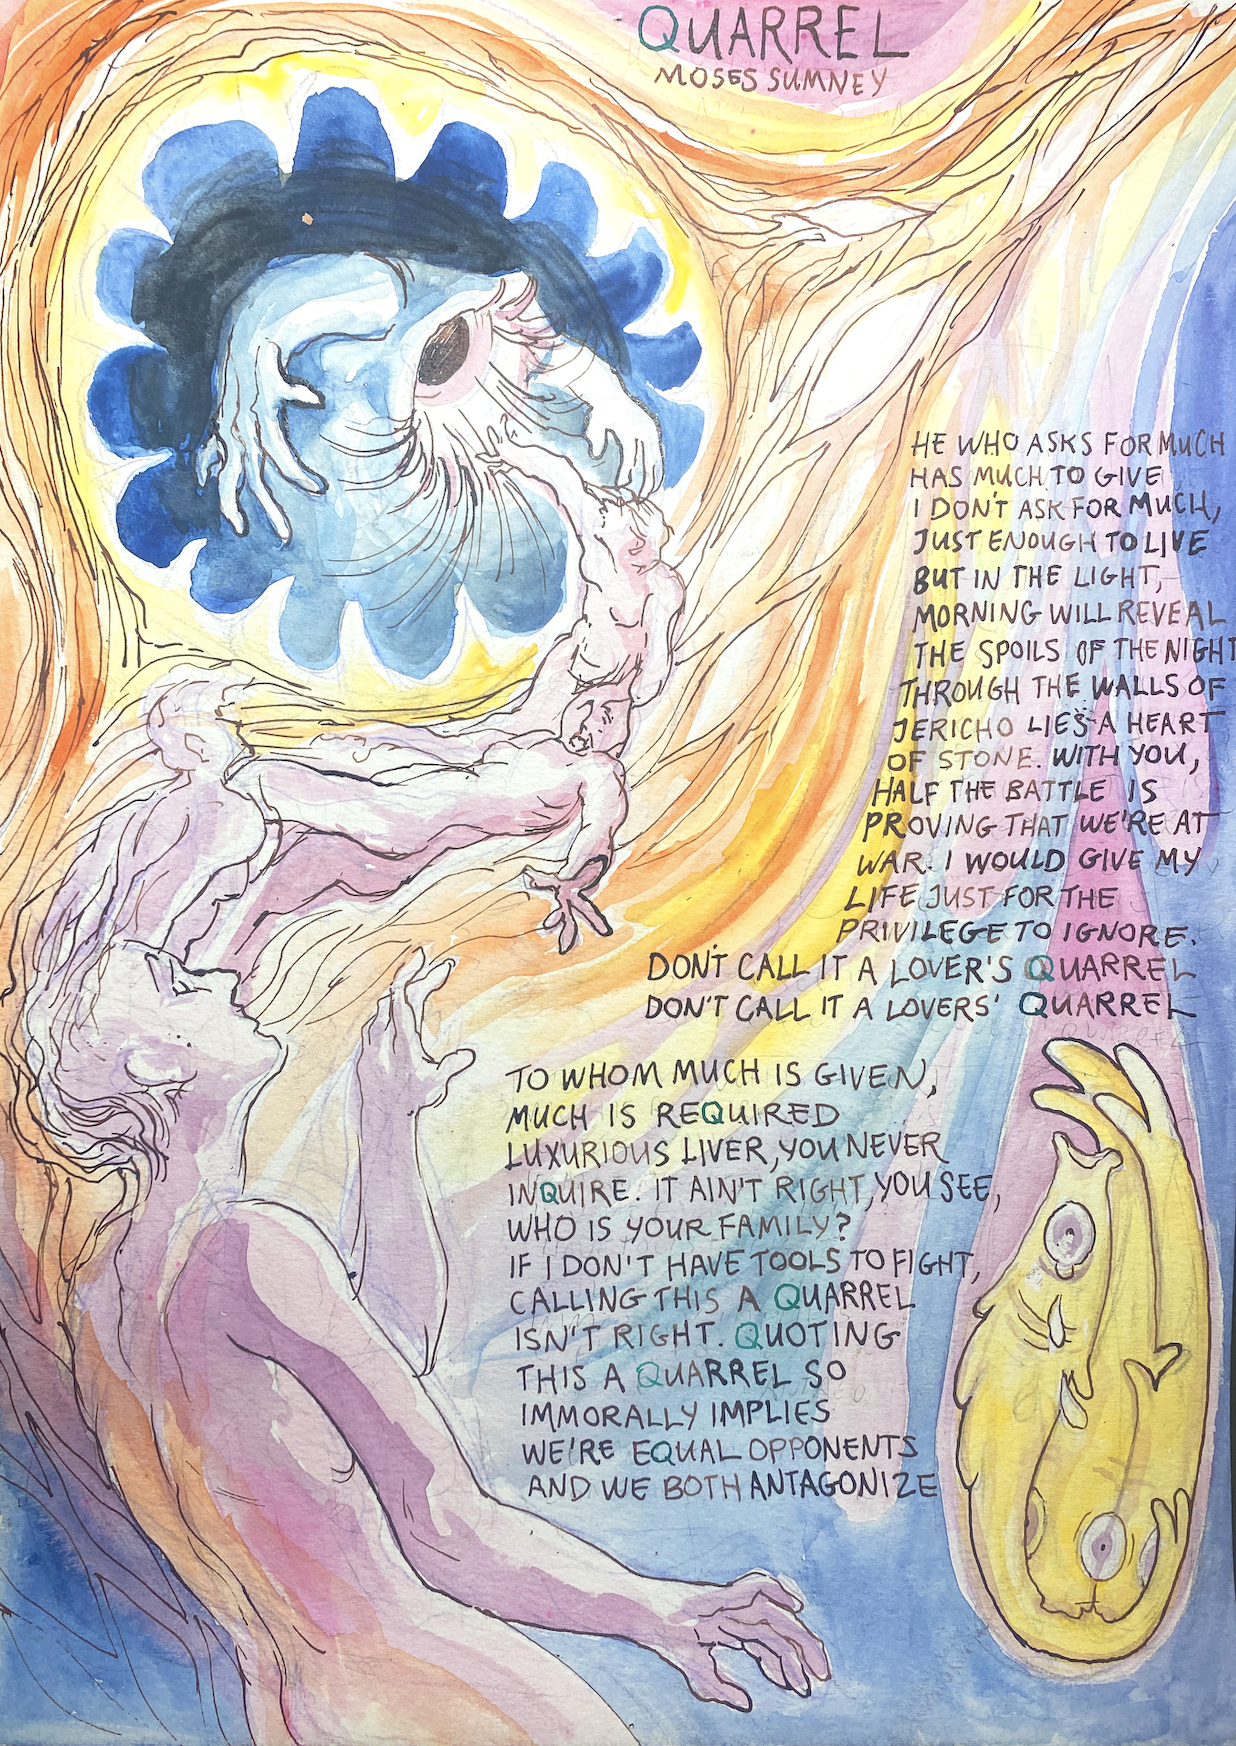 QUARREL
MOSES SUMNEY
HE WHO ASKS FOR MUCH
HAS MUCH TO GIVE
I DON'T ASK FOR MUCH,
JUST ENOUGH TO LIVE
BUT IN THE LIGHT,
MORNING WILL REVEAL
THE SPOILS OF THE NIGHT
THROUGH THE WALLS OF
JERICHO LIES A HEART
OF STONE. WITH YOU,
HALF THE BATTLE IS
PROVING THAT WE'RE AT
WAR. I WOULD GIVE MY
LIFE JUST FOR THE
PRIVILEGE TO IGNORE.
DON'T CALL IT A LOVER'S QUARREL
DON'T CALL IT A LOVERS' QUARREL
TO WHOM MUCH IS GIVEN,
MUCH IS REQUIRED
LUXURIOUS LIVER, YOU NEVER
INQUIRE. IT AIN'T RIGHT, YOU SEE,
WHO IS YOUR FAMILY?
IF I DON'T HAVE TOOLS TO FIGHT,
CALLING THIS A QUARREL
ISN'T RIGHT. QUOTING
THIS A QUARREL SO
IMMORALLY IMPLIES
WE'RE EQUAL OPPONENTS
AND WE BOTH ANTAGONIZE